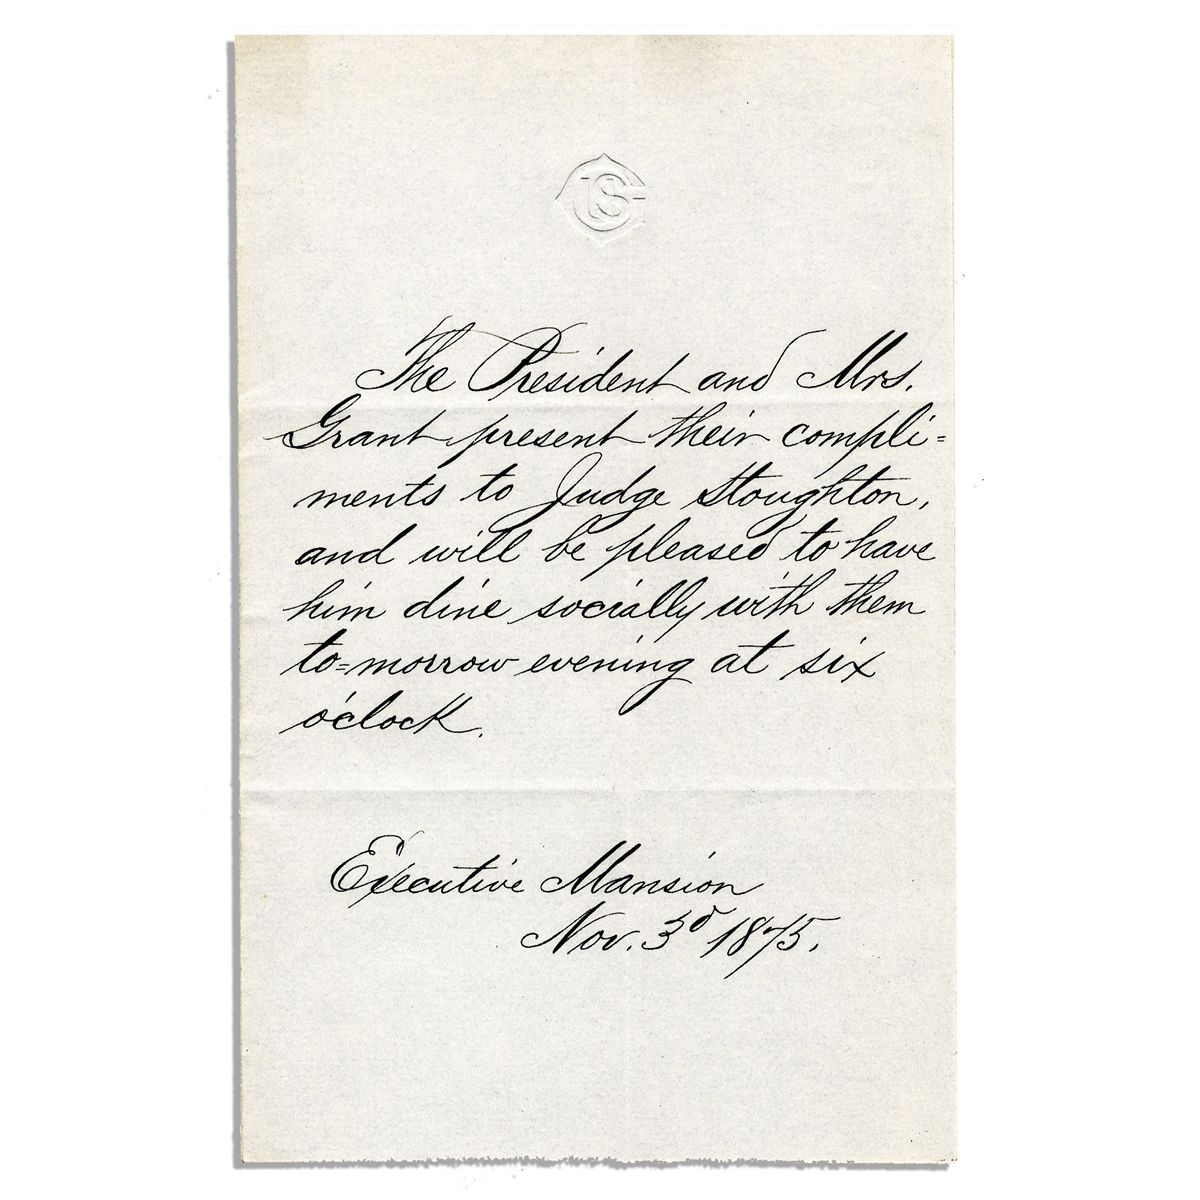 USG
The President and Mrs.
Grant present their compli=
ments to Judge Stoughton,
and will be pleased to have
him dine socially with them
to=morrow evening at six
o'clock.
Executive Mansion
Nov. 3d 1875.